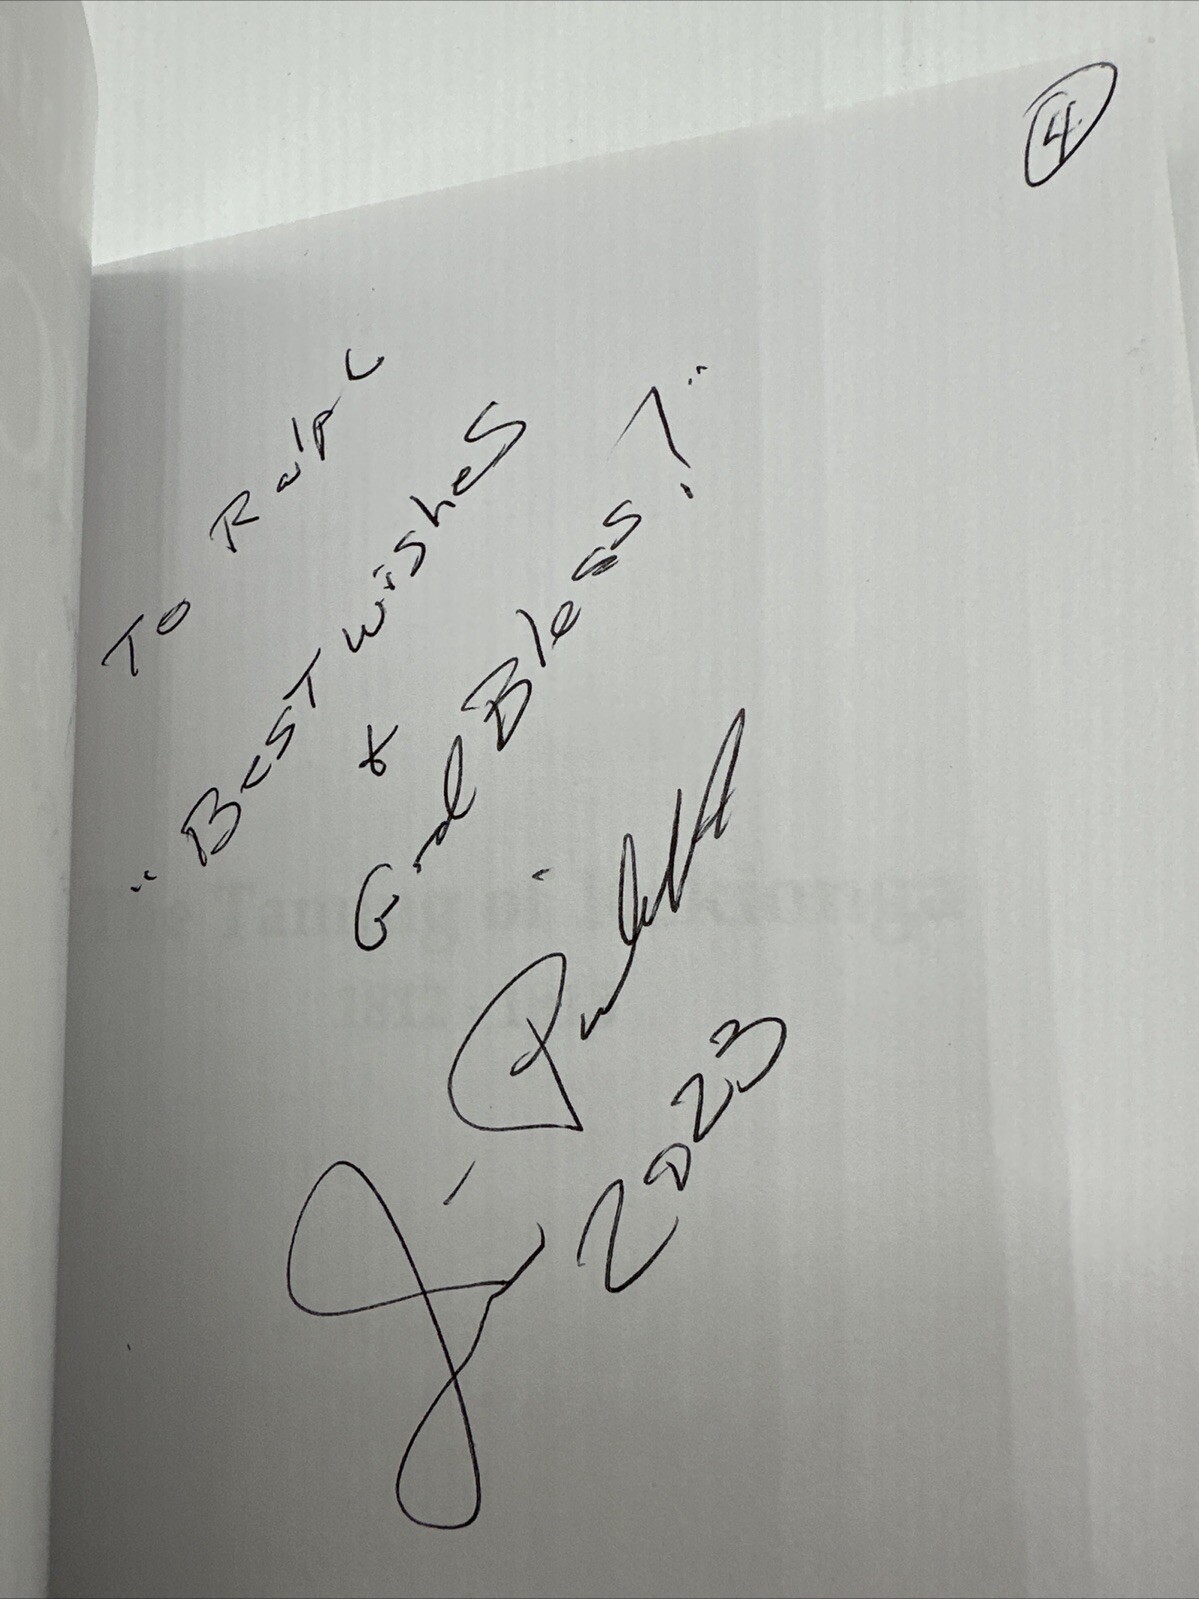 4
To Ralph
"Best wishes
&
God Bless!"
Jim
2023
The Taming of
1812